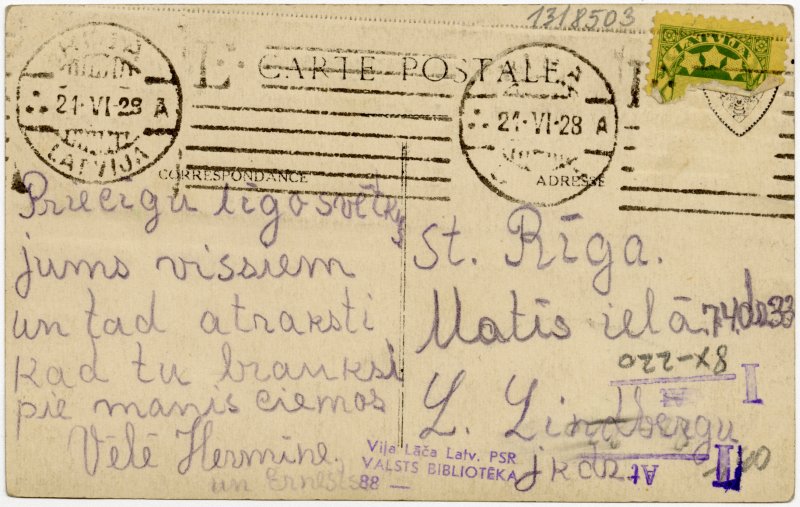 1318503
LATVIJA
CARTE POSTALE
21·VI·28 A
LATVIJA
21·VI·28 A
CORRESPONDANCE
ADRESSE
Priecīgu līgosvētkus
jums vissiem
un tad atraksti
kad tu brauksi
pie manis ciemos
Vēlē Hermine.
un Ernests
St. Rīga.
Matīs ielā 74 dz 33
L. Lindbergu
jkdz.
8X-220
I
II
At
Viļa Lāča Latv. PSR
VALSTS BIBLIOTĒKA
88 —